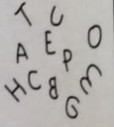 T U
A E P O
H C B G M